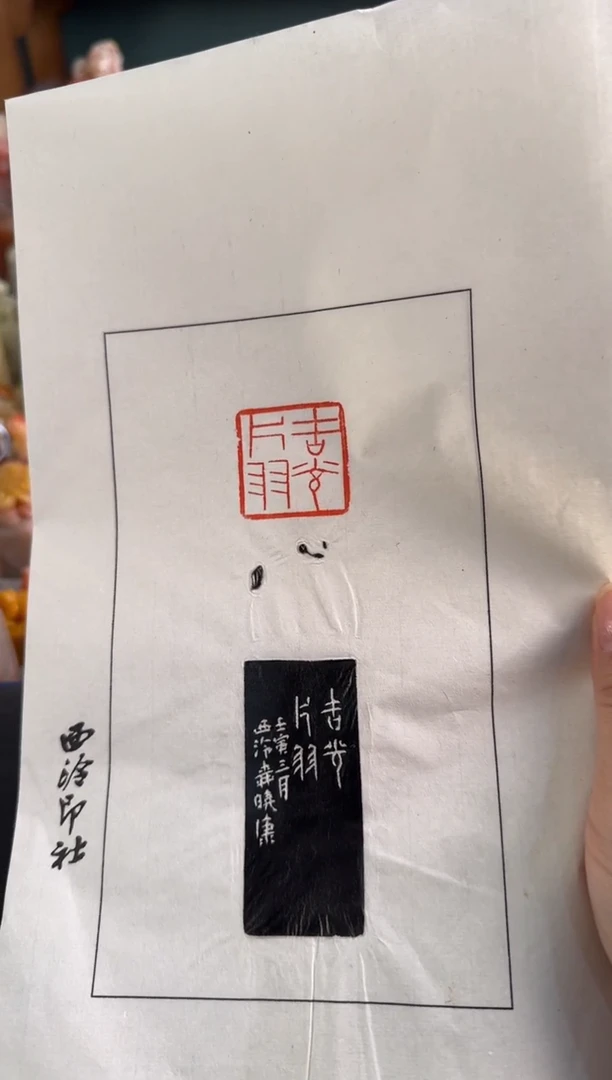 吉光
片羽
吉光
片羽
壬寅三月
西泠曉康
西泠印社